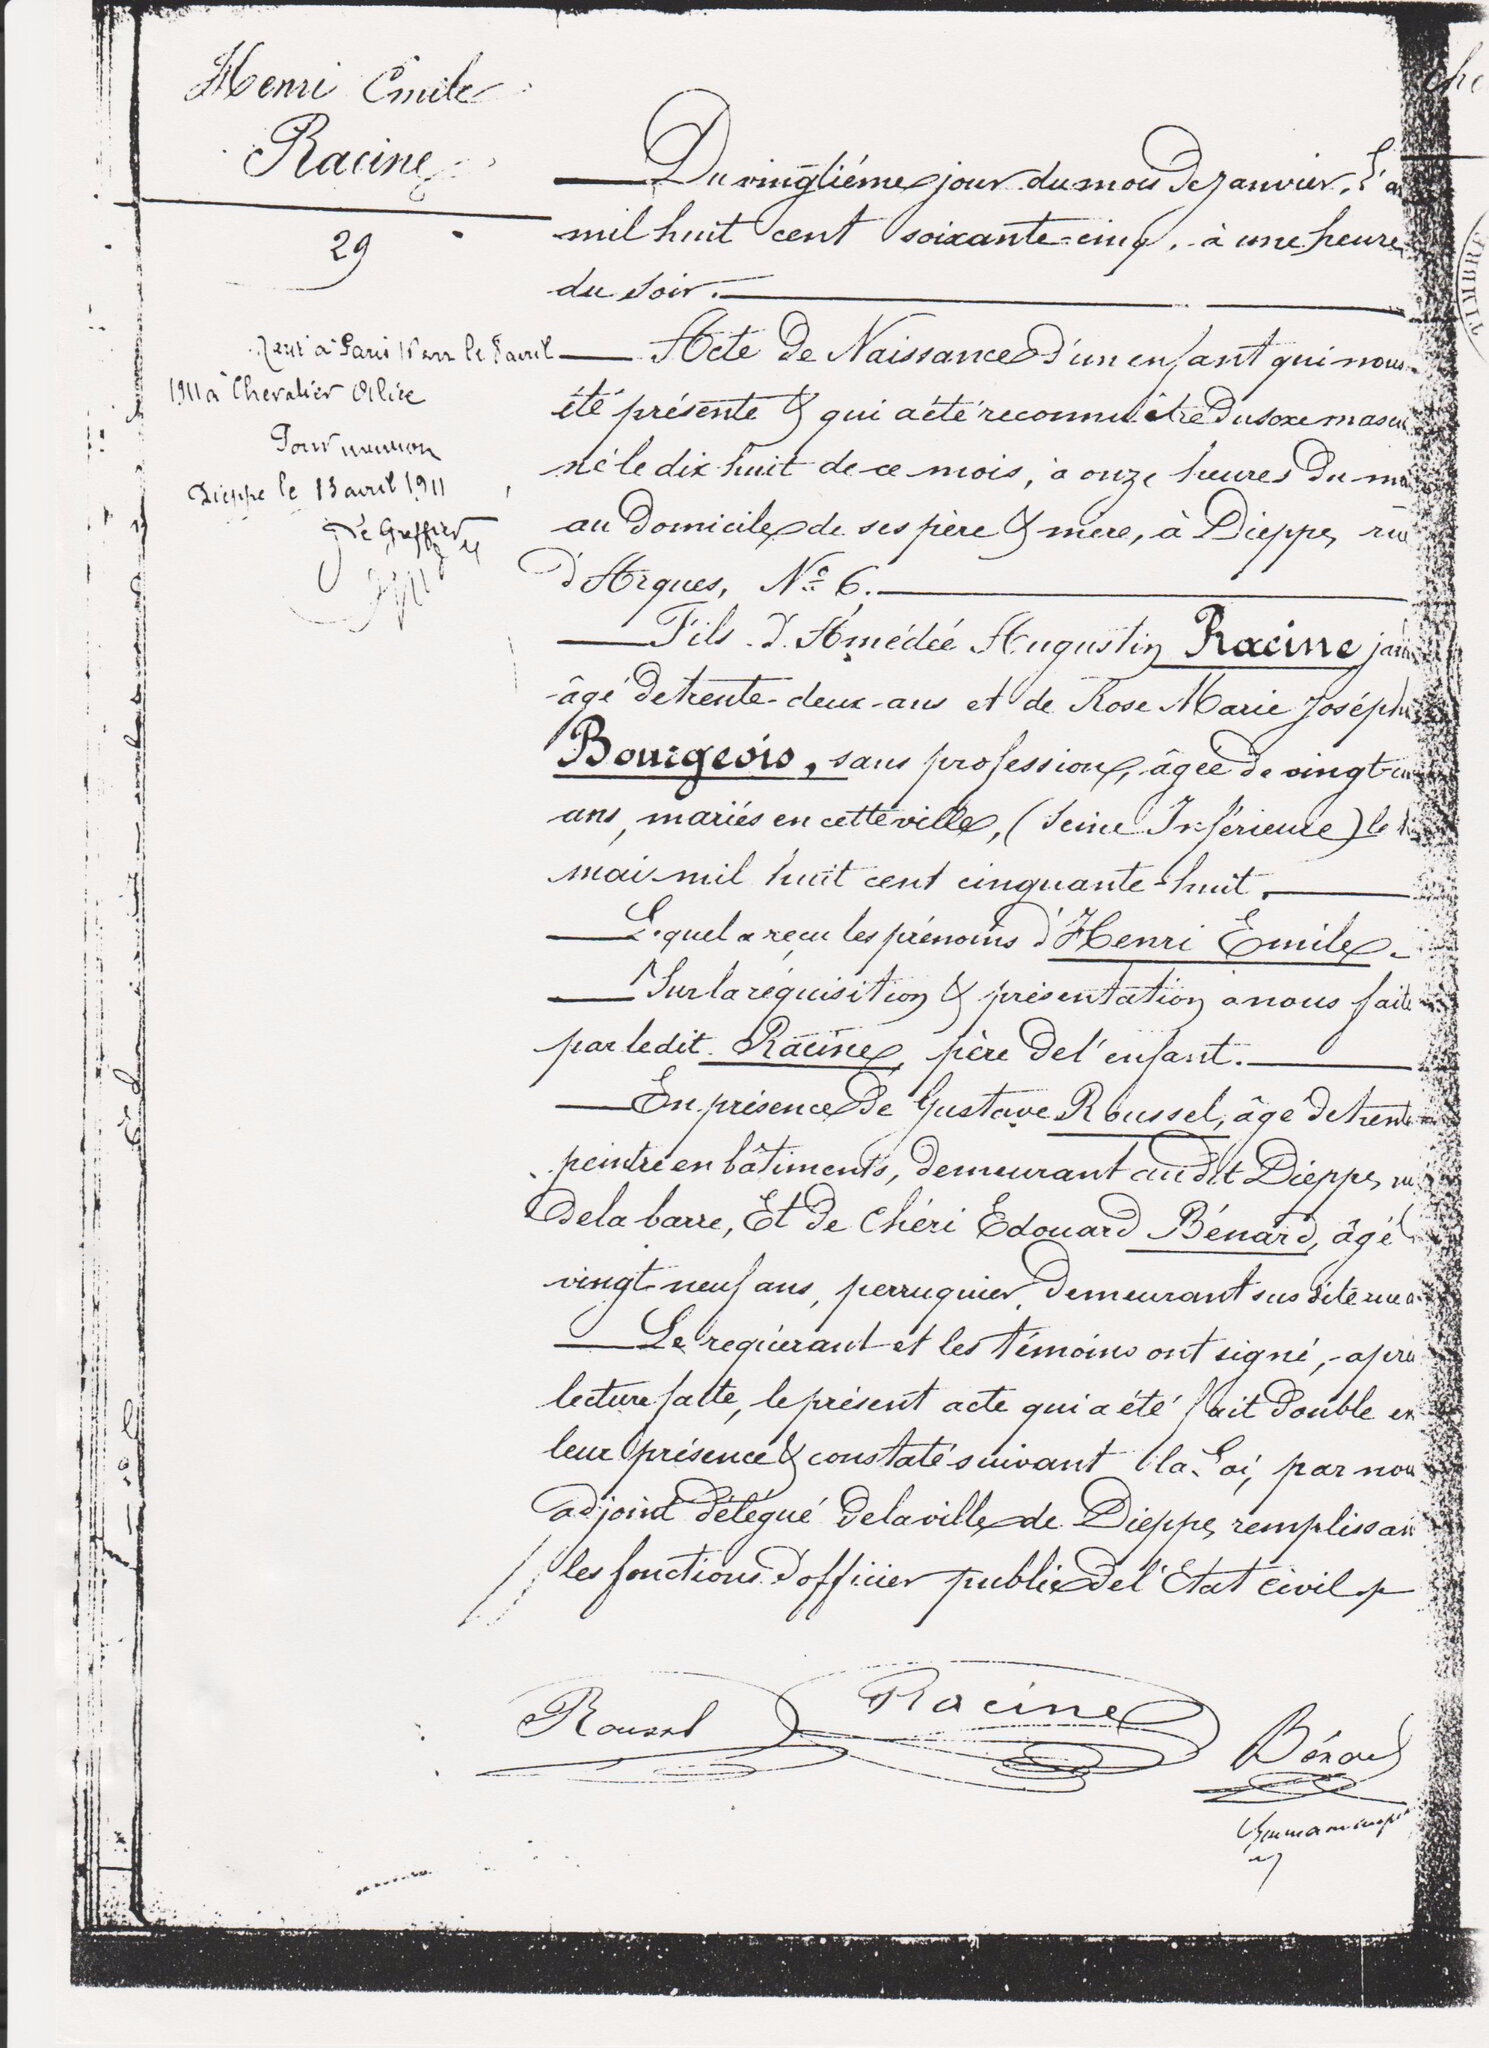 Henri Emile
Racine
29
à Paris le avril
1911 à Chevalier
Pour mention
Dieppe le 13 avril 1911
Le Greffier
Du vingtiéme jour du mois de Janvier, l'a
mil huit cent soixante-cinq, à une heure
du soir.
Acte de Naissance d'un enfant qui nous
été présenté & qui a été reconnu être du sexe mascu
né le dix huit de ce mois, à onze heures du ma
au domicile de ses père & mère, à Dieppe, ru
d'Arques, No 6.
Fils d'Amédée Augustin Racine jard
âgé de trente-deux-ans et de Rose Marie Joséph
Bourgeois, sans profession, âgée de vingt-
ans, mariés en cette ville, (Seine Inférieure) le
mai mil huit cent cinquante-huit.
Lequel a reçu les prénoms d'Henri Emile.
Sur la réquisition & présentation à nous faite
par ledit Racine, père de l'enfant.
En présence de Gustave Roussel, âgé de trente
peintre en bâtiments, demeurant audit Dieppe, ru
de la barre, Et de Chéri Edouard Bénard, âgé
vingt neuf ans, perruquier, demeurant sus dite rue
Le requérant et les témoins ont signé, après
lecture faite, le présent acte qui a été fait double en
leur présence & constaté suivant la Loi, par nou
adjoint délégué de la ville de Dieppe, remplissan
les fonctions d'officier public de l'Etat civil
Roussel
Racine
Bénard
Che
TIMBRE